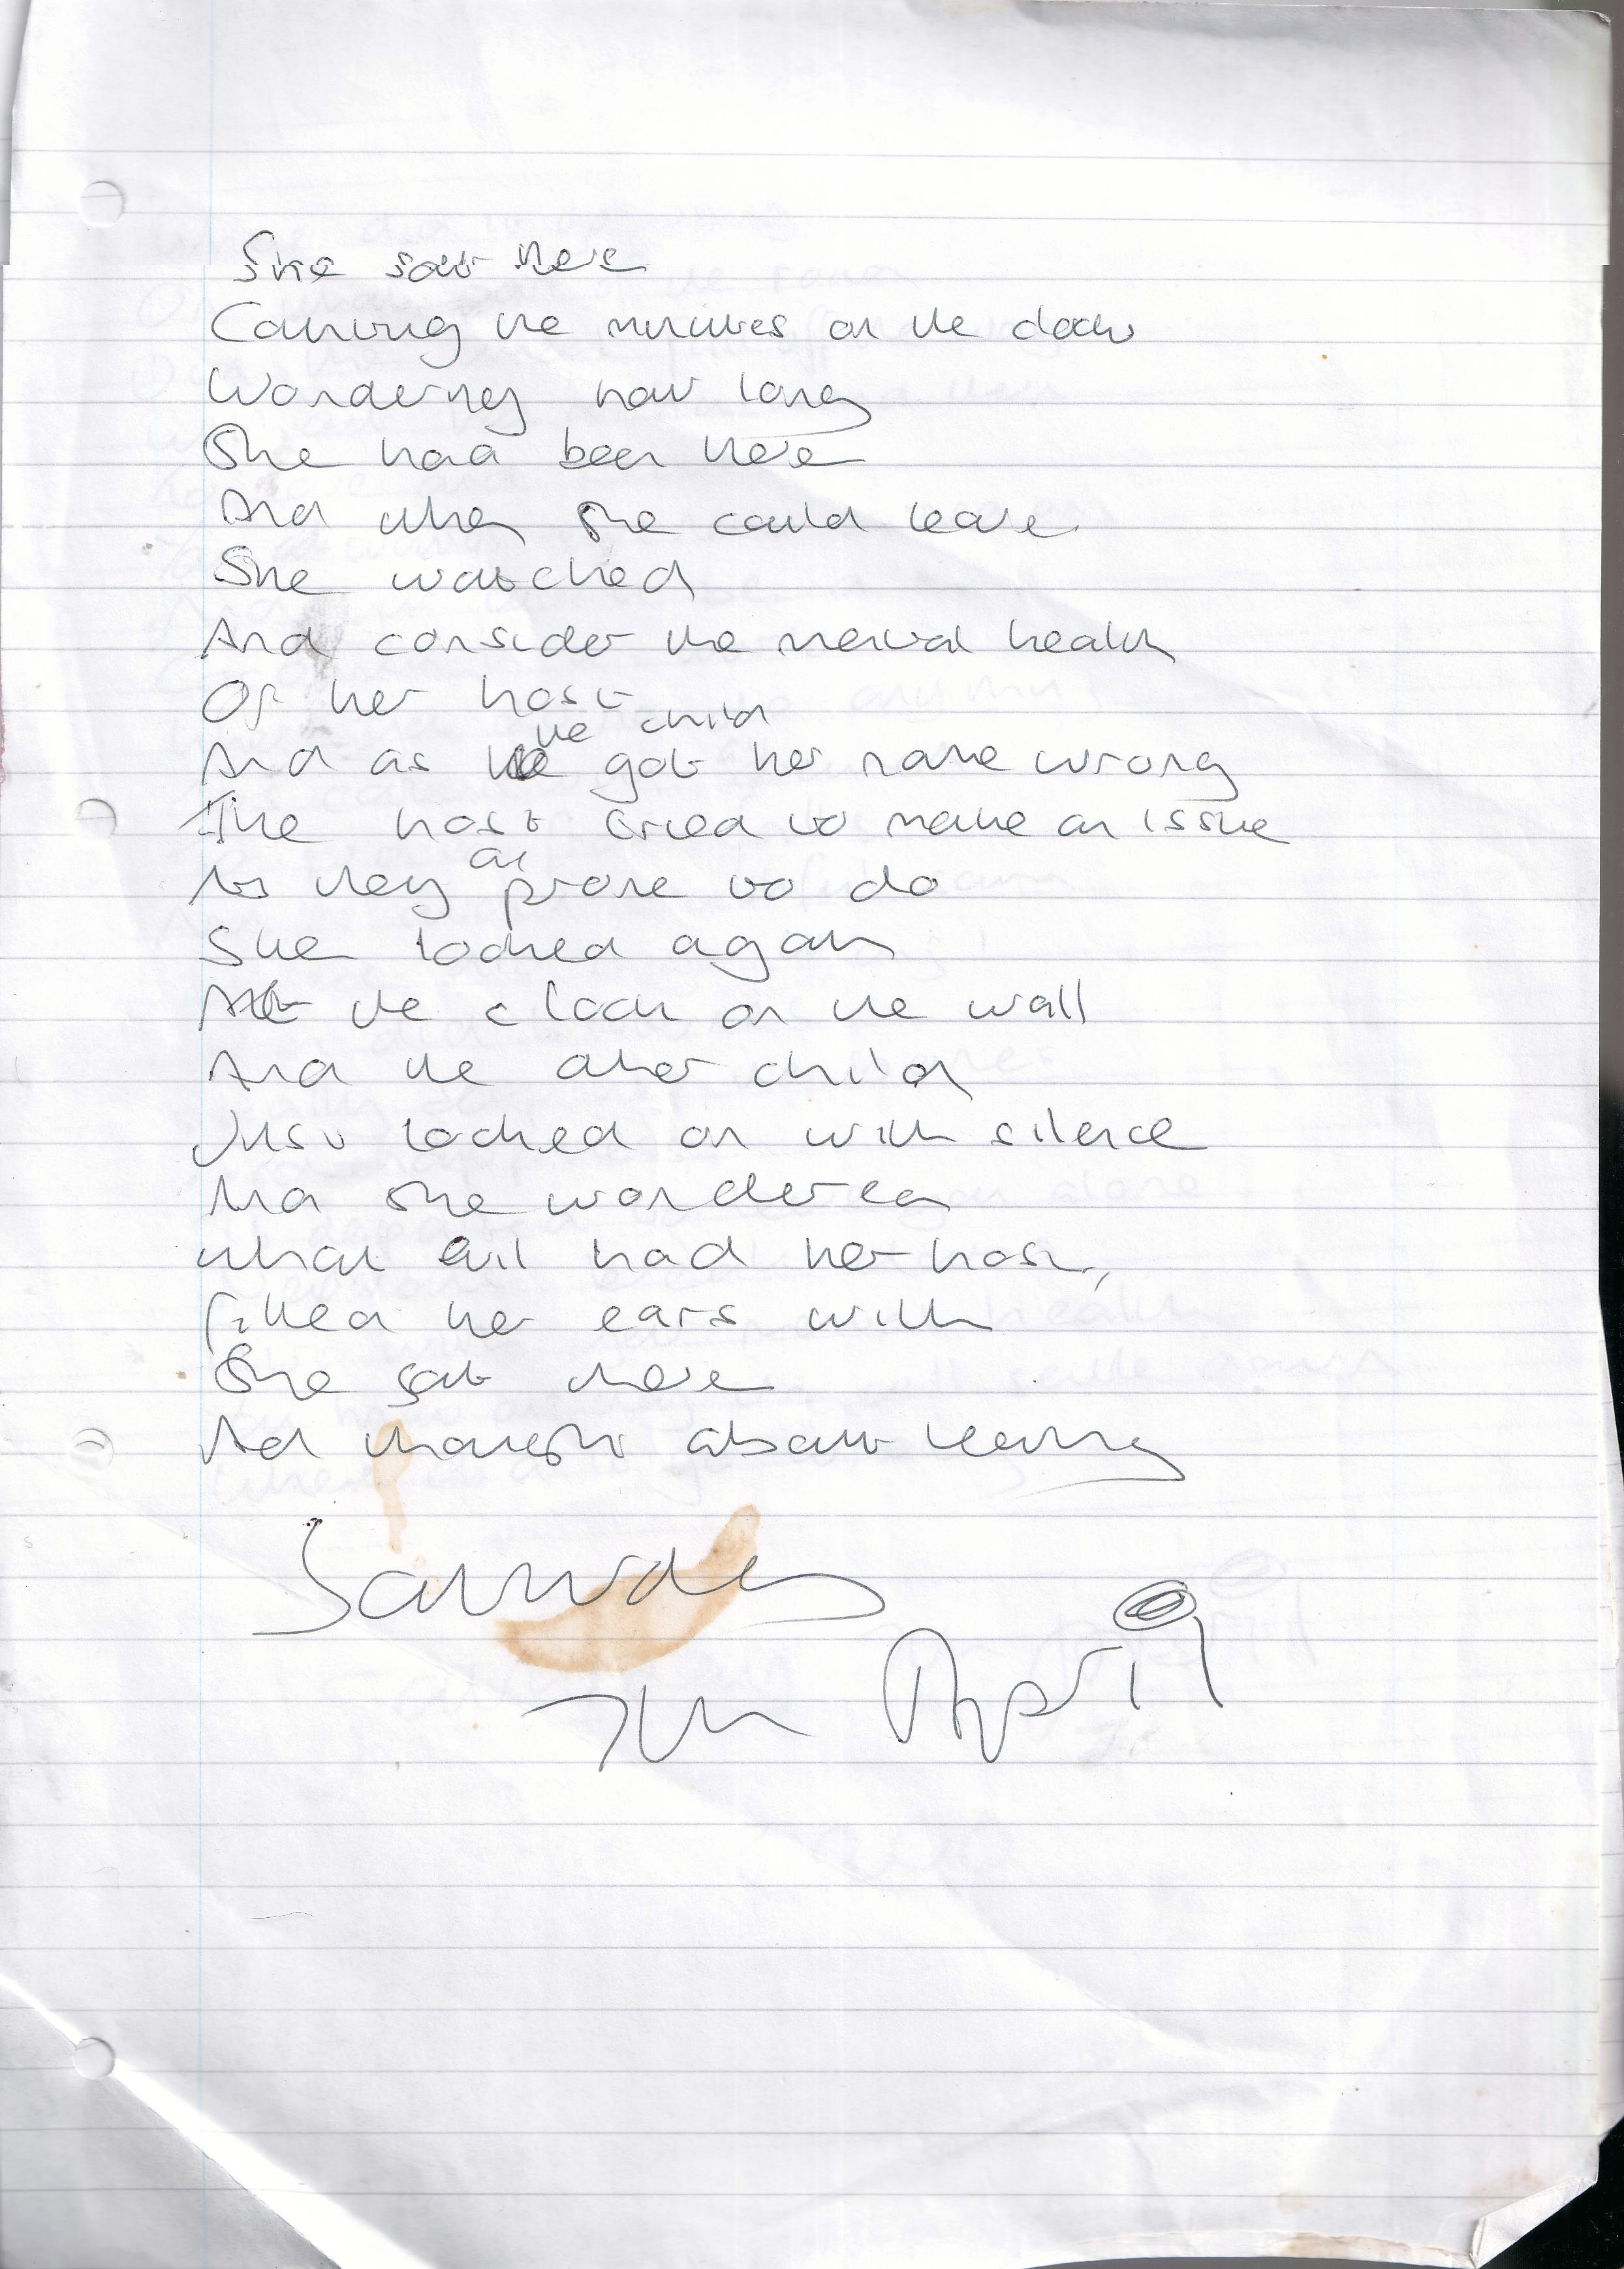 She sat there
Counting the minutes on the clock
Wondering how long
She had been here
And when she could leave
She watched
And consider the mental health
Of her host
the child
And as got her name wrong
The host tried to make an issue
As they are prone to do
She looked again
At the clock on the wall
And the other child
Just looked on with silence
And she wondered
What evil had her host,
filled her ears with
She sat there
And thought about leaving
Saturday
7th April